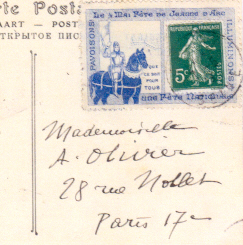 rte Posta
AART — POST
ТКРЫТОЕ ПИС
Le 8 Mai Fête de Jeanne d'Arc
PAVOISONS
ILLUMINONS
QUE
CE SOIT
POUR
TOUS
une Fête Nationale
REPUBLIQUE FRANÇAISE
5c
POSTES
Mademoiselle
A. Olivier
28 rue Nollet
Paris 17e